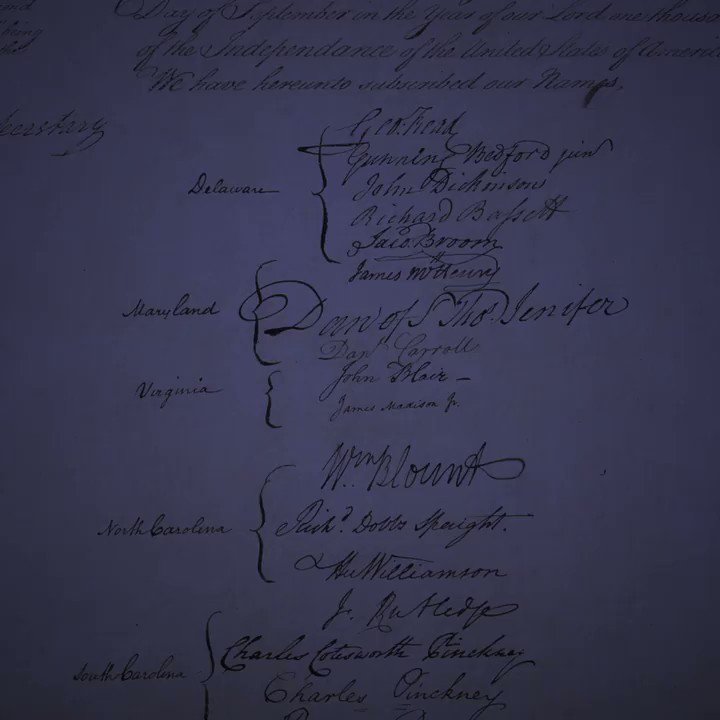 Day of September in the Year of our Lord one thous
of the Independance of the United States of Americ
We have hereunto subscribed our Names,
ecretary
Delaware
Geo: Read
Gunning Bedford jun
John Dickinson
Richard Bassett
Jaco: Broom
Maryland
James McHenry
Dan of St Thos. Jenifer
Danl Carroll
Virginia
John Blair —
James Madison Jr.
North Carolina
Wm. Blount
Richd. Dobbs Spaight.
Hu Williamson
South Carolina
J. Rutledge
Charles Cotesworth Pinckney
Charles Pinckney